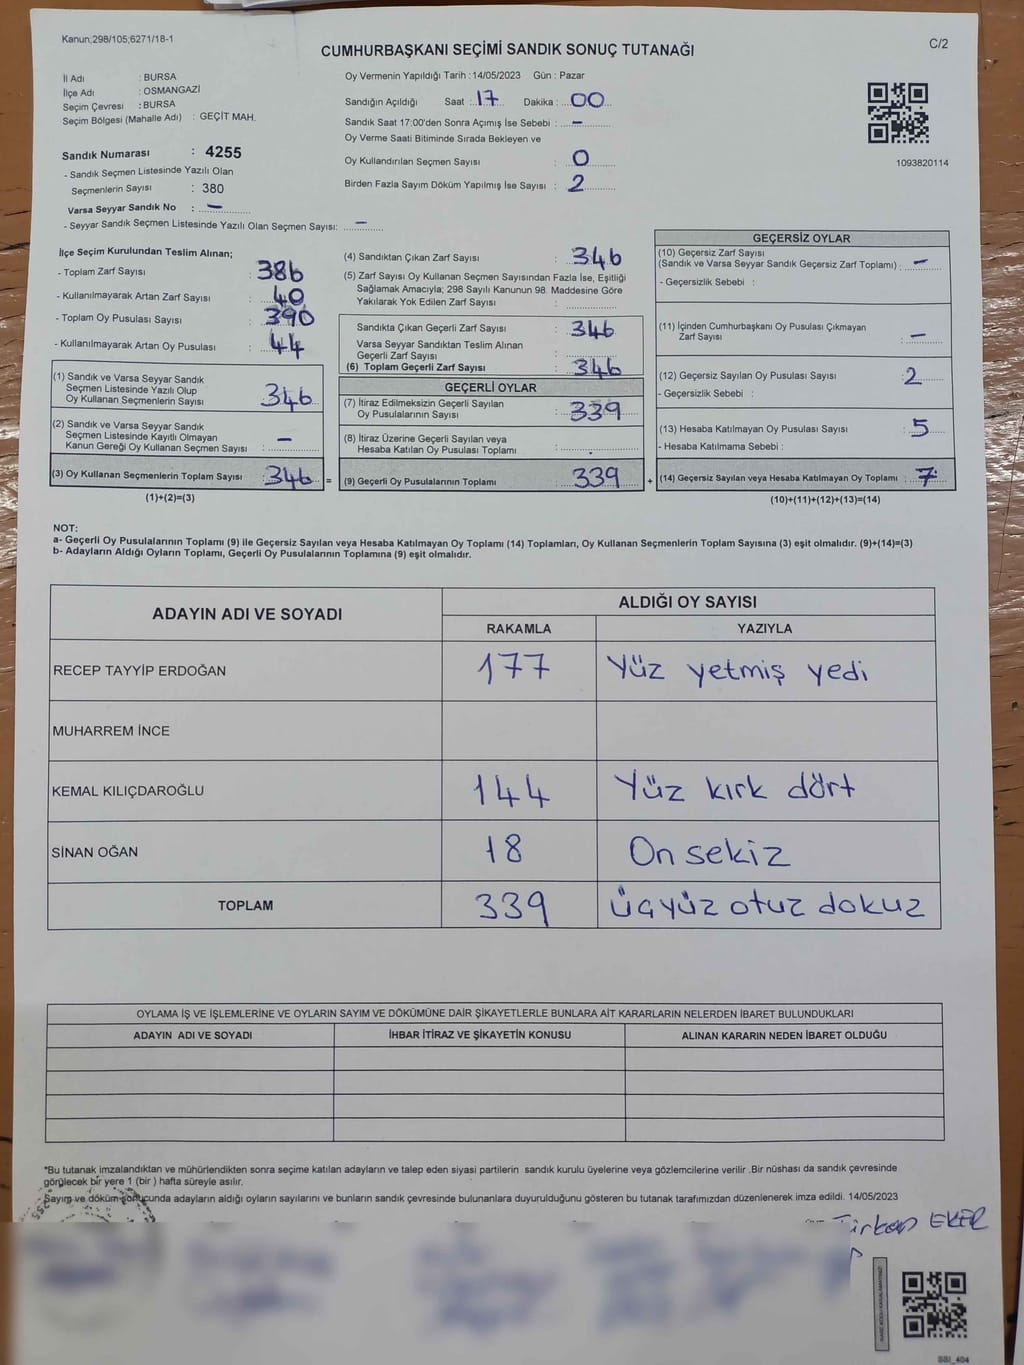 Kanun;298/105;6271/18-1
CUMHURBAŞKANI SEÇİMİ SANDIK SONUÇ TUTANAĞI
C/2
İl Adı : BURSA
İlçe Adı : OSMANGAZİ
Seçim Çevresi : BURSA
Seçim Bölgesi (Mahalle Adı) : GEÇİT MAH.
Sandık Numarası : 4255
- Sandık Seçmen Listesinde Yazılı Olan
Seçmenlerin Sayısı : 380
Varsa Seyyar Sandık No : –
- Seyyar Sandık Seçmen Listesinde Yazılı Olan Seçmen Sayısı: –
Oy Vermenin Yapıldığı Tarih : 14/05/2023 Gün : Pazar
Sandığın Açıldığı Saat : 17 Dakika : 00
Sandık Saat 17:00'den Sonra Açımış İse Sebebi : –
Oy Verme Saati Bitiminde Sırada Bekleyen ve
Oy Kullandırılan Seçmen Sayısı : 0
Birden Fazla Sayım Döküm Yapılmış İse Sayısı : 2
1093820114
İlçe Seçim Kurulundan Teslim Alınan;
- Toplam Zarf Sayısı : 386
- Kullanılmayarak Artan Zarf Sayısı : 40
- Toplam Oy Pusulası Sayısı : 390
- Kullanılmayarak Artan Oy Pusulası : 44
(1) Sandık ve Varsa Seyyar Sandık
Seçmen Listesinde Yazılı Olup
Oy Kullanan Seçmenlerin Sayısı : 346
(2) Sandık ve Varsa Seyyar Sandık
Seçmen Listesinde Kayıtlı Olmayan
Kanun Gereği Oy Kullanan Seçmen Sayısı : –
(3) Oy Kullanan Seçmenlerin Toplam Sayısı : 346 =
(1)+(2)=(3)
(4) Sandıktan Çıkan Zarf Sayısı : 346
(5) Zarf Sayısı Oy Kullanan Seçmen Sayısından Fazla İse, Eşitliği
Sağlamak Amacıyla; 298 Sayılı Kanunun 98. Maddesine Göre
Yakılarak Yok Edilen Zarf Sayısı :
Sandıkta Çıkan Geçerli Zarf Sayısı : 346
Varsa Seyyar Sandıktan Teslim Alınan
Geçerli Zarf Sayısı :
(6) Toplam Geçerli Zarf Sayısı : 346
GEÇERLİ OYLAR
(7) İtiraz Edilmeksizin Geçerli Sayılan
Oy Pusulalarının Sayısı : 339
(8) İtiraz Üzerine Geçerli Sayılan veya
Hesaba Katılan Oy Pusulası Toplamı :
(9) Geçerli Oy Pusulalarının Toplamı : 339 +
GEÇERSİZ OYLAR
(10) Geçersiz Zarf Sayısı
(Sandık ve Varsa Seyyar Sandık Geçersiz Zarf Toplamı) : –
- Geçersizlik Sebebi :
(11) İçinden Cumhurbaşkanı Oy Pusulası Çıkmayan
Zarf Sayısı : –
(12) Geçersiz Sayılan Oy Pusulası Sayısı : 2
- Geçersizlik Sebebi :
(13) Hesaba Katılmayan Oy Pusulası Sayısı : 5
- Hesaba Katılmama Sebebi :
(14) Geçersiz Sayılan veya Hesaba Katılmayan Oy Toplamı : 7
(10)+(11)+(12)+(13)=(14)
NOT:
a- Geçerli Oy Pusulalarının Toplamı (9) ile Geçersiz Sayılan veya Hesaba Katılmayan Oy Toplamı (14) Toplamları, Oy Kullanan Seçmenlerin Toplam Sayısına (3) eşit olmalıdır. (9)+(14)=(3)
b- Adayların Aldığı Oyların Toplamı, Geçerli Oy Pusulalarının Toplamına (9) eşit olmalıdır.
ADAYIN ADI VE SOYADI ALDIĞI OY SAYISI
RAKAMLA YAZIYLA
RECEP TAYYİP ERDOĞAN 177 Yüz yetmiş yedi
MUHARREM İNCE
KEMAL KILIÇDAROĞLU 144 Yüz kırk dört
SİNAN OĞAN 18 On sekiz
TOPLAM 339 üçyüz otuz dokuz
OYLAMA İŞ VE İŞLEMLERİNE VE OYLARIN SAYIM VE DÖKÜMÜNE DAİR ŞİKAYETLERLE BUNLARA AİT KARARLARIN NELERDEN İBARET BULUNDUKLARI
ADAYIN ADI VE SOYADI İHBAR İTİRAZ VE ŞİKAYETİN KONUSU ALINAN KARARIN NEDEN İBARET OLDUĞU
*Bu tutanak imzalandıktan ve mühürlendikten sonra seçime katılan adayların ve talep eden siyasi partilerin sandık kurulu üyelerine veya gözlemcilerine verilir .Bir nüshası da sandık çevresinde
görülecek bir yere 1 (bir ) hafta süreyle asılır.
Sayım ve döküm sonucunda adayların aldığı oyların sayılarını ve bunların sandık çevresinde bulunanlara duyurulduğunu gösteren bu tutanak tarafımızdan düzenlenerek imza edildi. 14/05/2023
Türkan EKER
SSI_404